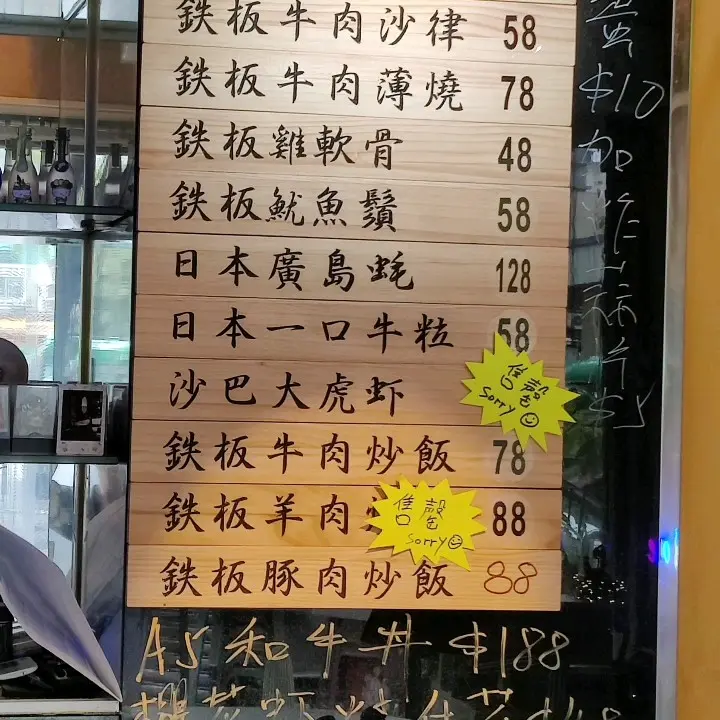 鉄板牛肉沙律 58
鉄板牛肉薄燒 78
鉄板雞軟骨 48
鉄板魷魚鬚 58
日本廣島蚝 128
日本一口牛粒 58
沙巴大虎虾
售罄
sorry
鉄板牛肉炒飯 78
鉄板羊肉 88
售罄
sorry
鉄板豚肉炒飯 88
A5和牛丼 $188
$10
加炸蒜片
$5